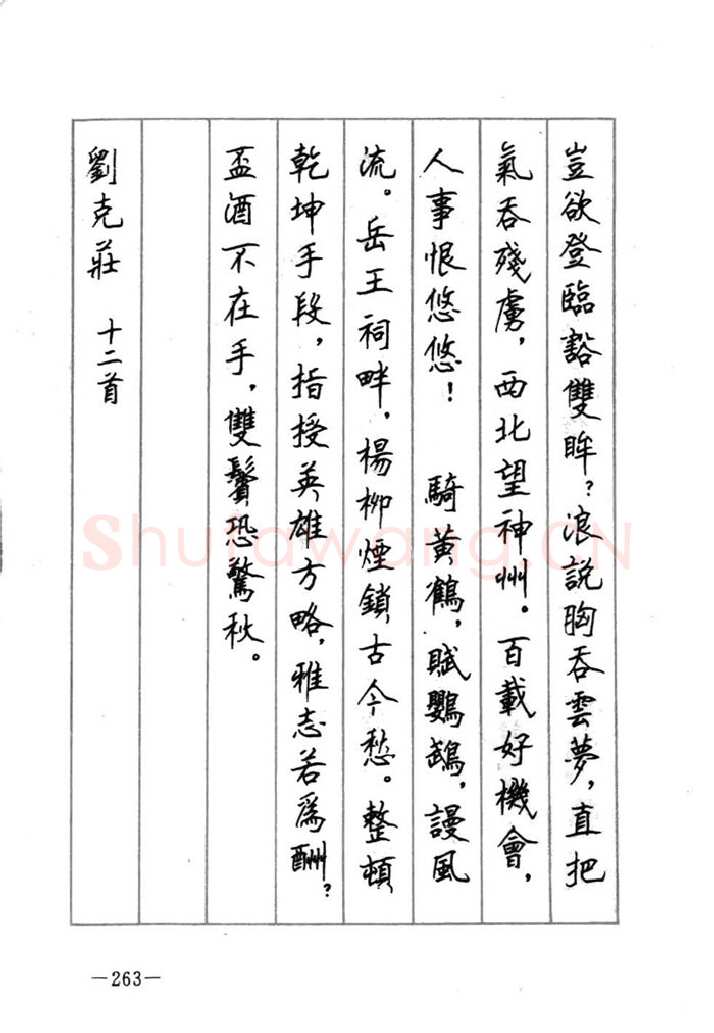 豈欲登臨豁雙眸？浪說胸吞雲夢，直把
氣吞殘虜，西北望神州。百載好機會，
人事恨悠悠！　騎黃鶴，賦鸚鵡，謾風
流。岳王祠畔，楊柳煙鎖古今愁。整頓
乾坤手段，指授英雄方略，雅志若爲酬？
盃酒不在手，雙鬢恐驚秋。
劉克莊　十二首
Shufawang.CN
—263—